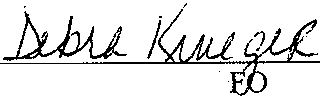 Debra Krueger
EO